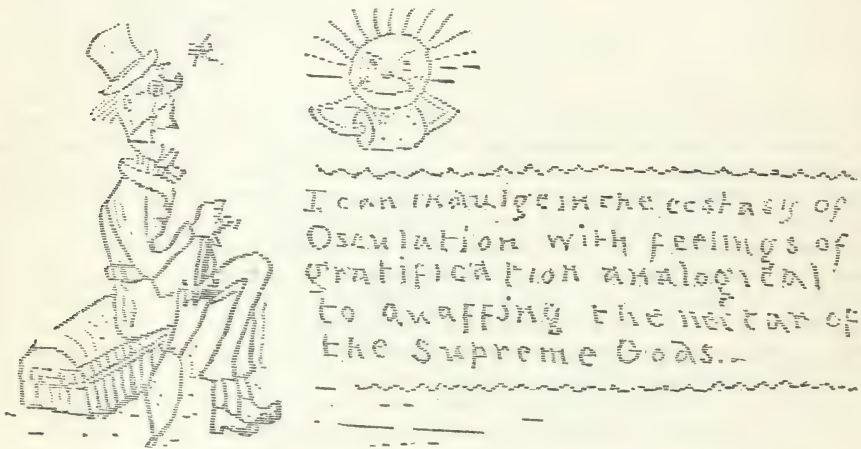 I can indulge in the ecstasy of
Osculation with feelings of
gratification analogical
to quaffing the nectar of
the Supreme Gods.-